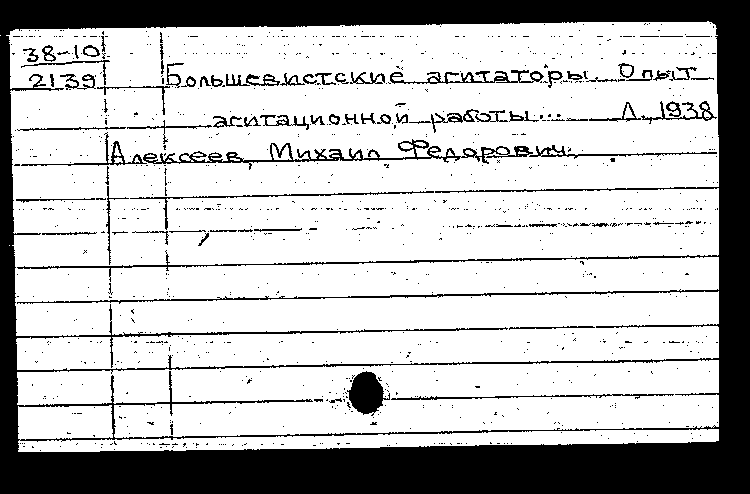 38-10
2139 Большевистские агитаторы. Опыт
агитационной работы... Л., 1938
Алексеев, Михаил Федорович.